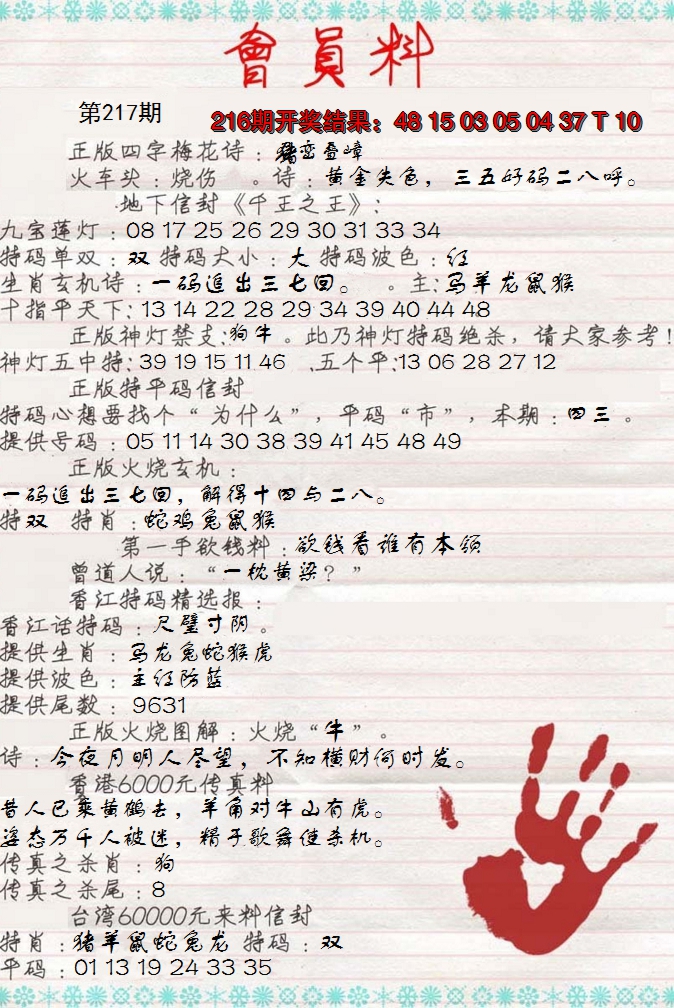 會員料
第217期
216期开奖结果：48 15 03 05 04 37 T 10
正版四字梅花诗：猪峦叠嶂
火车头：烧伤 。诗：黄金失色，三五好码二八呼。
地下信封《千王之王》：
九宝莲灯：08 17 25 26 29 30 31 33 34
特码单双：双 特码大小：大 特码波色：红
生肖玄机诗：一码追出三七回。 。主：马羊龙鼠猴
十指平天下：13 14 22 28 29 34 39 40 44 48
正版神灯禁支：狗牛 。此乃神灯特码绝杀，请大家参考！
神灯五中特：39 19 15 11.46 .五个平：13 06 28 27 12
正版特平码信封
特码心想要找个“为什么”，平码“市”，本期：四三 。
提供号码：05 11 14 30 38 39 41 45 48 49
正版火烧玄机：
一码追出三七回，解得十四与二八。
特双 特肖：蛇鸡兔鼠猴
第一手欲钱料：欲钱看谁有本领
曾道人说：“一枕黄梁？”
香江特码精选报：
香江话特码：尺璧寸阴。
提供生肖：马龙兔蛇猴虎
提供波色：主红防蓝
提供尾数：9631
正版火烧图解：火烧“牛”。
诗：今夜月明人尽望，不知横财何时发。
香港6000元传真料
昔人已乘黄鹤去，羊角对牛山有虎。
姿态万千人被迷，精于歌舞使杀机。
传真之杀肖：狗
传真之杀尾：8
台湾60000元来料信封
特肖：猪羊鼠蛇兔龙 特码：双
平码：01 13 19 24 33 35